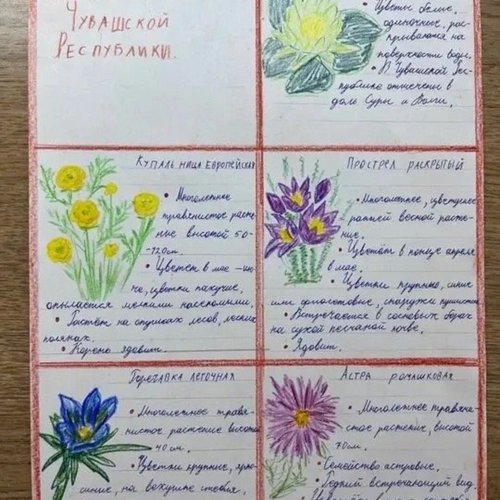 Чувашской
Республики.
• Цветы белые,
одиночные, рас-
пускаются на
поверхности воды.
• В Чувашской Рес-
публике отмечены в
доль Суры и Волги.
Купальница европейская
• Многолетнее
травянистое расте-
ние высотой 50-
-120см.
• Цветёт в мае -ию-
не, цветки пахучие,
опыляется мелкими насекомыми.
• Растёт на опушках лесов, лесных
полянах.
• Корень ядовит.
Прострел раскрытый
• Многолетнее, цветущее
ранней весной расте-
ние.
• Цветёт в конце апреля
в мае.
• Цветки крупные, синие
или фиолетовые, снаружи пушистые
• Встречается в сосновых борах
на сухой песчаной почве.
• Ядовит.
Горечавка легочная
• Многолетнее травя-
нистое растение высотой
40см.
• Цветки крупные, ярко-
синие, на верхушке стебля.
Астра ромашковая
• Многолетнее травяни-
стое растение, высотой
70см.
• Семейство астровые.
• Редкий встречающий вид.